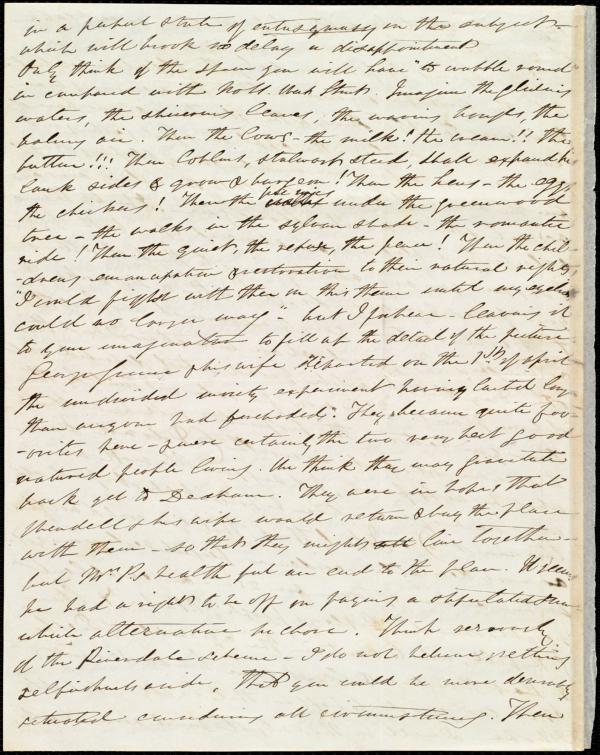 in a perfect state of enthusymussy on the subject —
which will brook no delay or disappointment
Only think of the space you will have "to wobble round"
in compared with North. Imagine the gliding
waters, the shivering leaves, the waving boughs, the
balmy air. Then the Cows — the milk! the cream!! the
butter!!! Then Coblins, stalwart steed, shall expand his
lank sides & grow & burgeon! Then the hens — the eggs
the chickens! Then the pic nics under the greenwood
tree — the walks in the sylvan shade — the romantic
ride! Then the quiet, the repose, the peace! Then the chil-
-drens emancipation & restoration to their natural rights,
"I could fight with thee on this theme until my eyelids
could no longer wag" — but I forbear — leaving it
to your imagination to fill up the detail of the picture.
George & his wife departed on the 1st of April
the undivided society experiment having lasted longer
than anyone had foreboded. They became quite fav-
-orites here — were certainly the two very best good
natured people living. We think they may gravitate
back yet to Dedham. They were in hopes that
Wendell & his wife would return & buy the place
with them — so that they might live together —
but Mrs P.s health put an end to the plan. It seems
he had a right to be off on paying a stipulated sum
which alternative he chose. Think seriously
of the Riverdale scheme — I do not believe, setting
selfishness aside, that you could be more desirably
situated considering all circumstances. Then